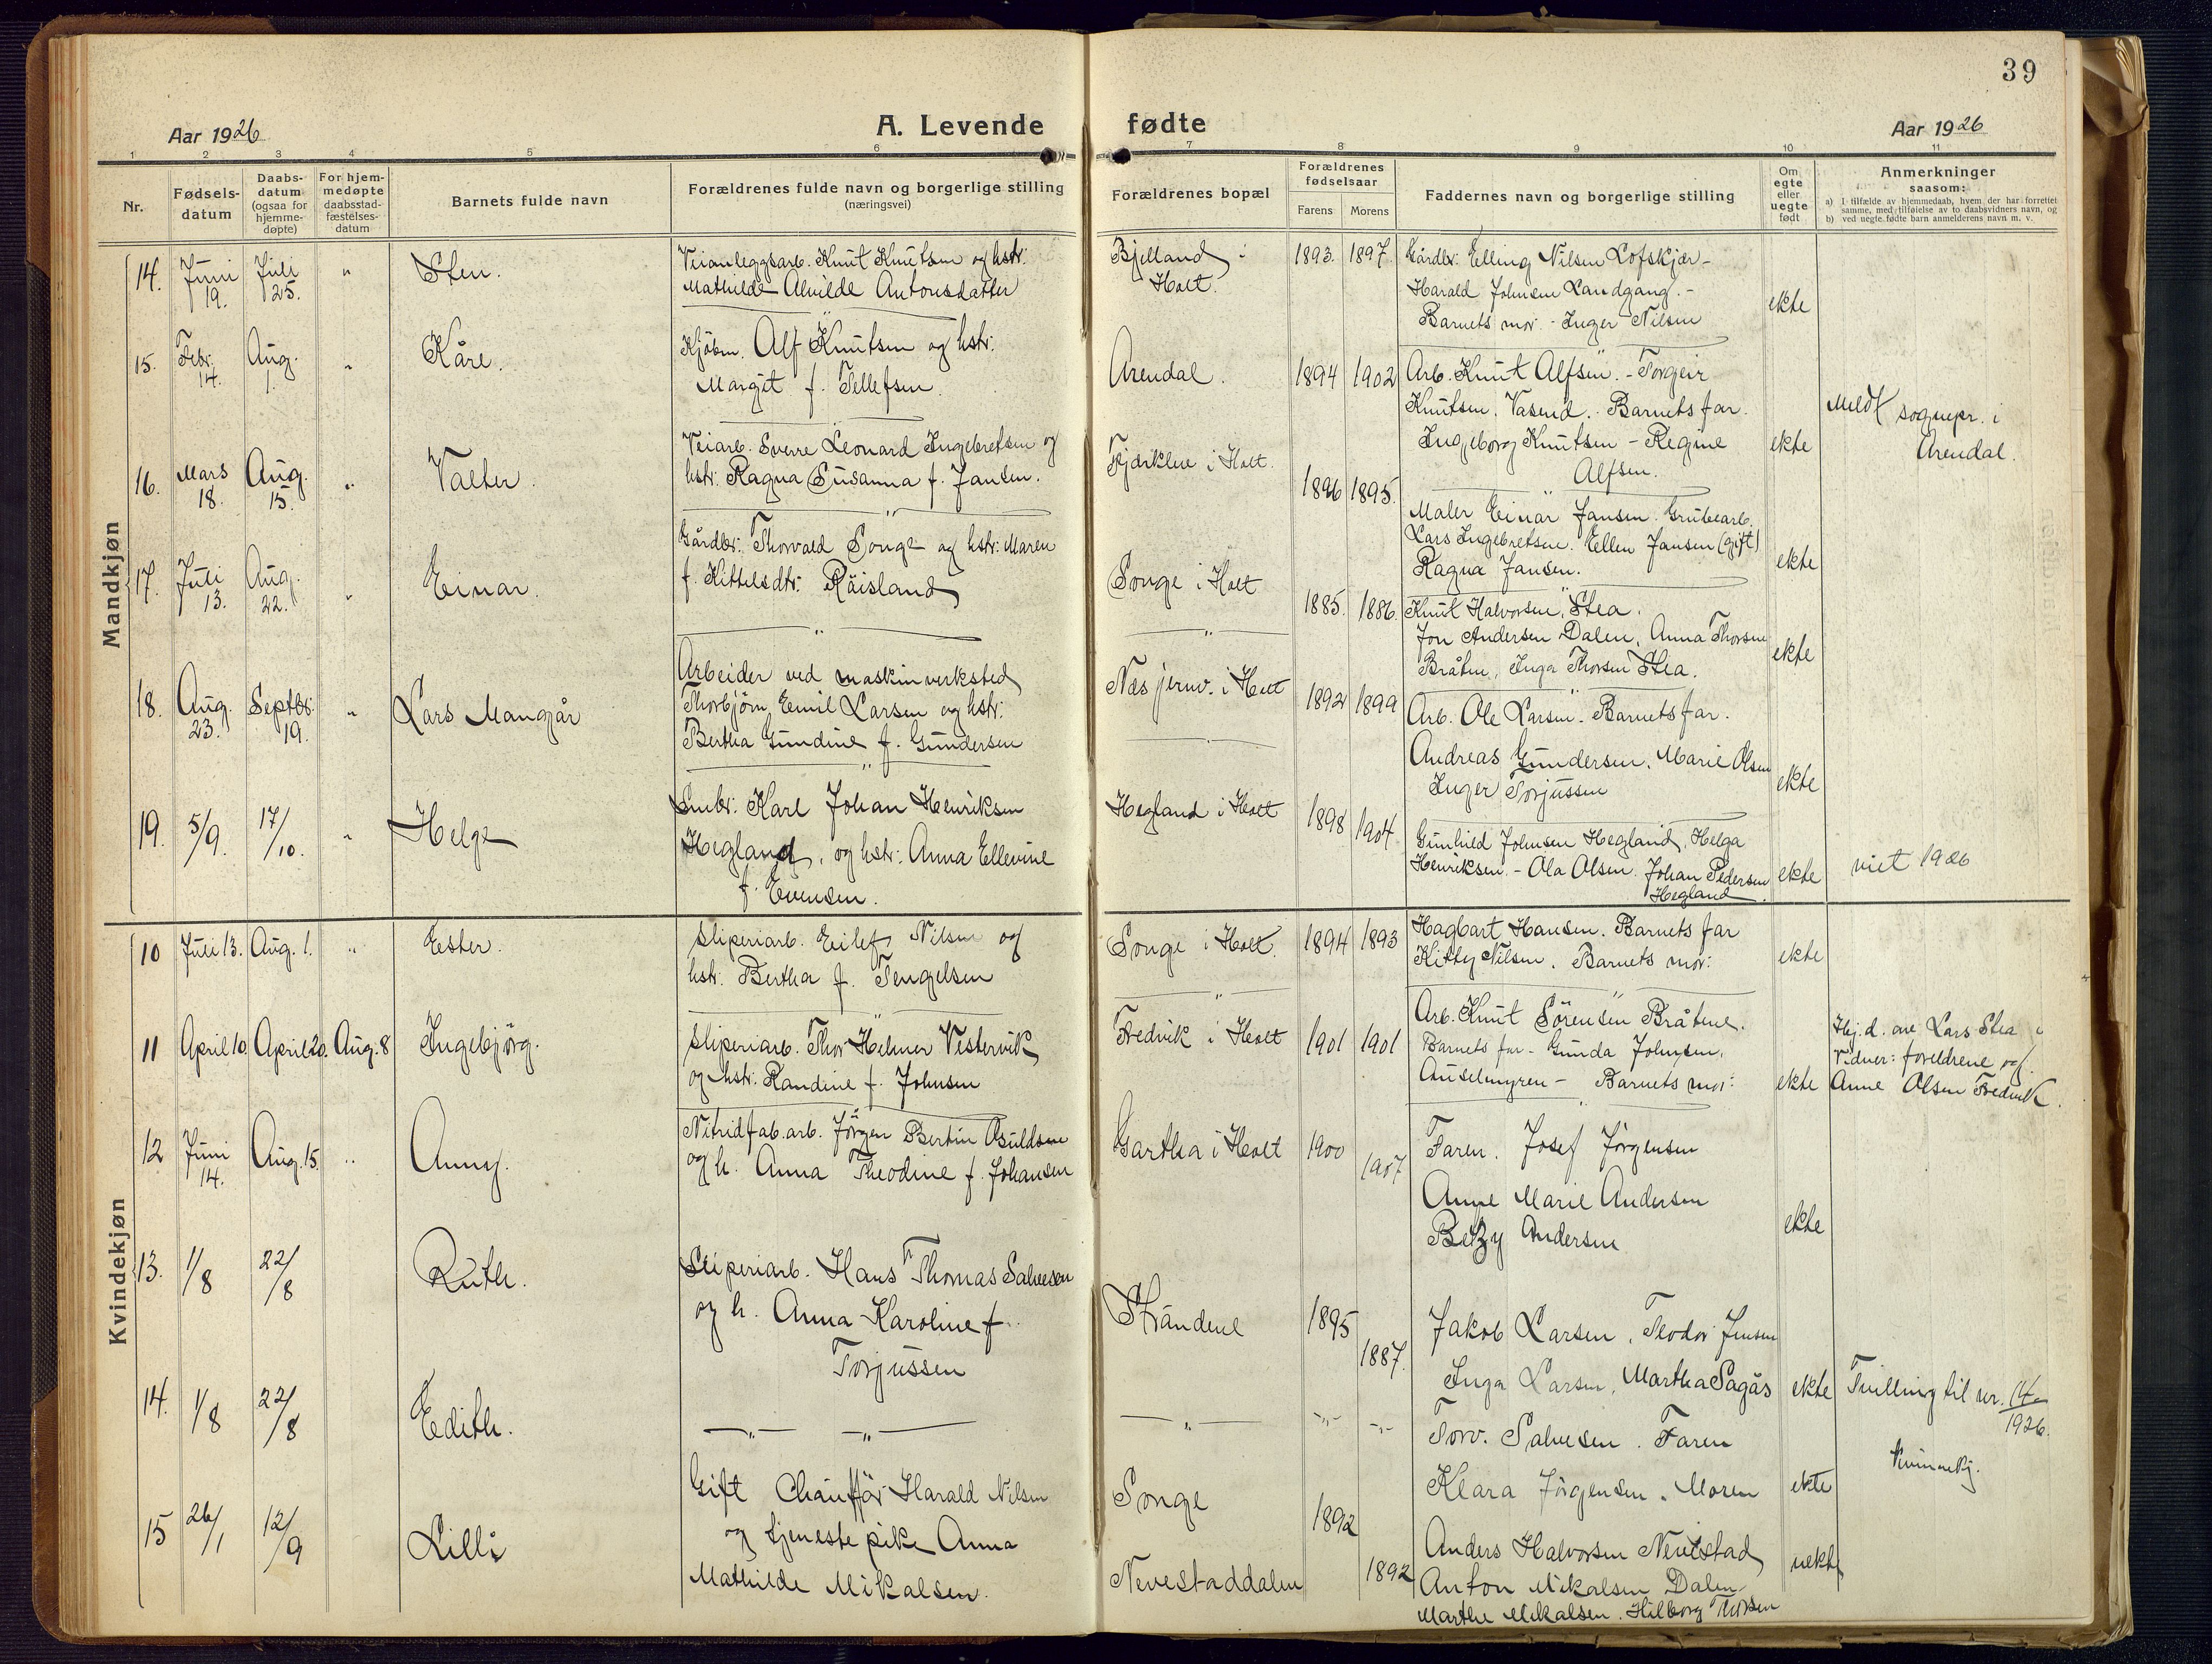 39
Aar 1926
A. Levende fødte
Aar 1926
1 2 3 4 5 6 7 8 9 10 11
Nr.
Fødsels-datum
Daabs-datum (ogsaa for hjemme-døpte)
For hjem-medøpte daabsstad-fæstelses-datum
Barnets fulde navn
Forældrenes fulde navn og borgerlige stilling
(næringsvei)
Forældrenes bopæl
Forældrenes fødselsaar
Farens Morens
Faddernes navn og borgerlige stilling
Om egte eller uegte født
Anmerkninger
saasom:
a) I tilfælde av hjemmedaab, hvem der har forrettet samme, med tilføielse av to daabsvidners navn, og
b) ved uegte fødte barn anmelderens navn m. v.
Mandkjøn
14. Juni 19. Juli 25. " Sten.
Veianleggsarb. Knut Knutsen og hstr:
Mathilde Alvilde Antonsdatter
Bjelland i Holt. 1893. 1897.
Gårdbr: Elling Nilsen Lofskjær -
Harald Johnsen Landgang. -
Barnets mor. - Inger Nilsen
ekte
15. Febr. 14. Aug. 1. " Kåre.
Kjøbm. Alf Knutsen og hstr:
Margit f. Tellefsen.
Arendal. 1894 1902
Arb. Knut Alfsen. - Torgeir
Knutsen, Vasend. Barnets far.
Ingeborg Knutsen - Regine
Alfsen.
ekte
Meldt sognepr. i
Arendal.
16. Mars 18. Aug. 15. " Valter.
Veiarb. Sverre Leonard Ingebretsen og
hstr: Ragna Susanna f. Jansen.
Fjærkleiv i Holt. 1896 1895.
Maler Einar Jansen. Grubearb.
Lars Ingebretsen. Ellen Jansen (gift)
Ragna Jansen.
ekte
17. Juli 13. Aug. 22. " Einar.
Gårdbr: Thorvald Songe og hstr: Maren
f. Kittelsdtr: Röisland
Songe i Holt 1885. 1886.
Knut Halvorsen, Stea.
Jon Andersen Dalen, Anna Thorsen
Bråten, Inga Thorsen Stea.
ekte
18. Aug. 23. Septbr. 19. " Lars Mangjår
Arbeider ved maskinverksted
Thorbjörn Emil Larsen og hstr:
Bertha Gundine f. Gundersen
Næs jernv. i Holt 1892 1899
Arb. Ole Larsen. Barnets far.
Andreas Gundersen, Marie Olsen
Inger Torjussen
ekte
19. 5/9. 17/10. " Helge
Småbr: Karl Johan Henriksen
Hegland, og hstr: Anna Ellevine
f. Evensen.
Hegland i Holt 1898 1904
Gunhild Johnsen Hegland, Helga
Henriksen. - Ola Olsen. Johan Pedersen
Hegland.
ekte
viet 1926
Kvindekjøn
10 Juli 13. Aug. 1. " Ester.
Sliperiarb. Eilef Nilsen og
hstr. Bertha f. Tengelsen
Songe i Holt. 1894 1893
Hagbart Hansen. Barnets far
Kitty Nilsen. Barnets mor:
ekte
11 April 10. April 20. Aug. 8 Ingebjörg.
Sliperiarb. Thor Helmer Vestervik
og hstr: Randine f. Johnsen
Fredvik i Holt 1901 1901
Arb. Knut Sörensen Bråtene.
Barnets far - Gunda Johnsen,
Anselmyren - Barnets mor:
ekte
Hj.d. av Lars Stea
Vidner: foreldrene og
Anne Olsen Fredvik.
12 Juni 14. Aug. 15. " Anny.
Nitridfab.arb. Jörgen Bertin Osuldsen
og h. Anna Theodine f. Johansen
Gartha i Holt 1900 1907
Faren. Josef Jörgensen
Anne Marie Andersen
Betzy Andersen
ekte
13. 1/8 22/8 Ruth.
Sliperiarb. Hans Thomas Salvesen
og h. Anna Karoline f.
Torjussen
Strandene 1895 1887.
Jakob Larsen, Teodor Jensen
Inga Larsen, Martha Sagås
ekte
Tvilling til nr. 14/1926.
Kvinnekj.
14. 1/8 22/8 Edith.
— " — — " —
— " — - " - - " -
Torv. Salvesen. Faren
Klara Jörgensen. Moren
ekte
15 26/1 12/9 Lilli
Gift Chaufför Harald Nilsen
og tjenestepike Anna
Mathilde Mikalsen.
Songe 1892
Nevestaddalen 1892
Anders Halvorsen Nevestad
Anton Mikalsen Dalen
Marthe Mikalsen. Hilborg Thorsen
uekte